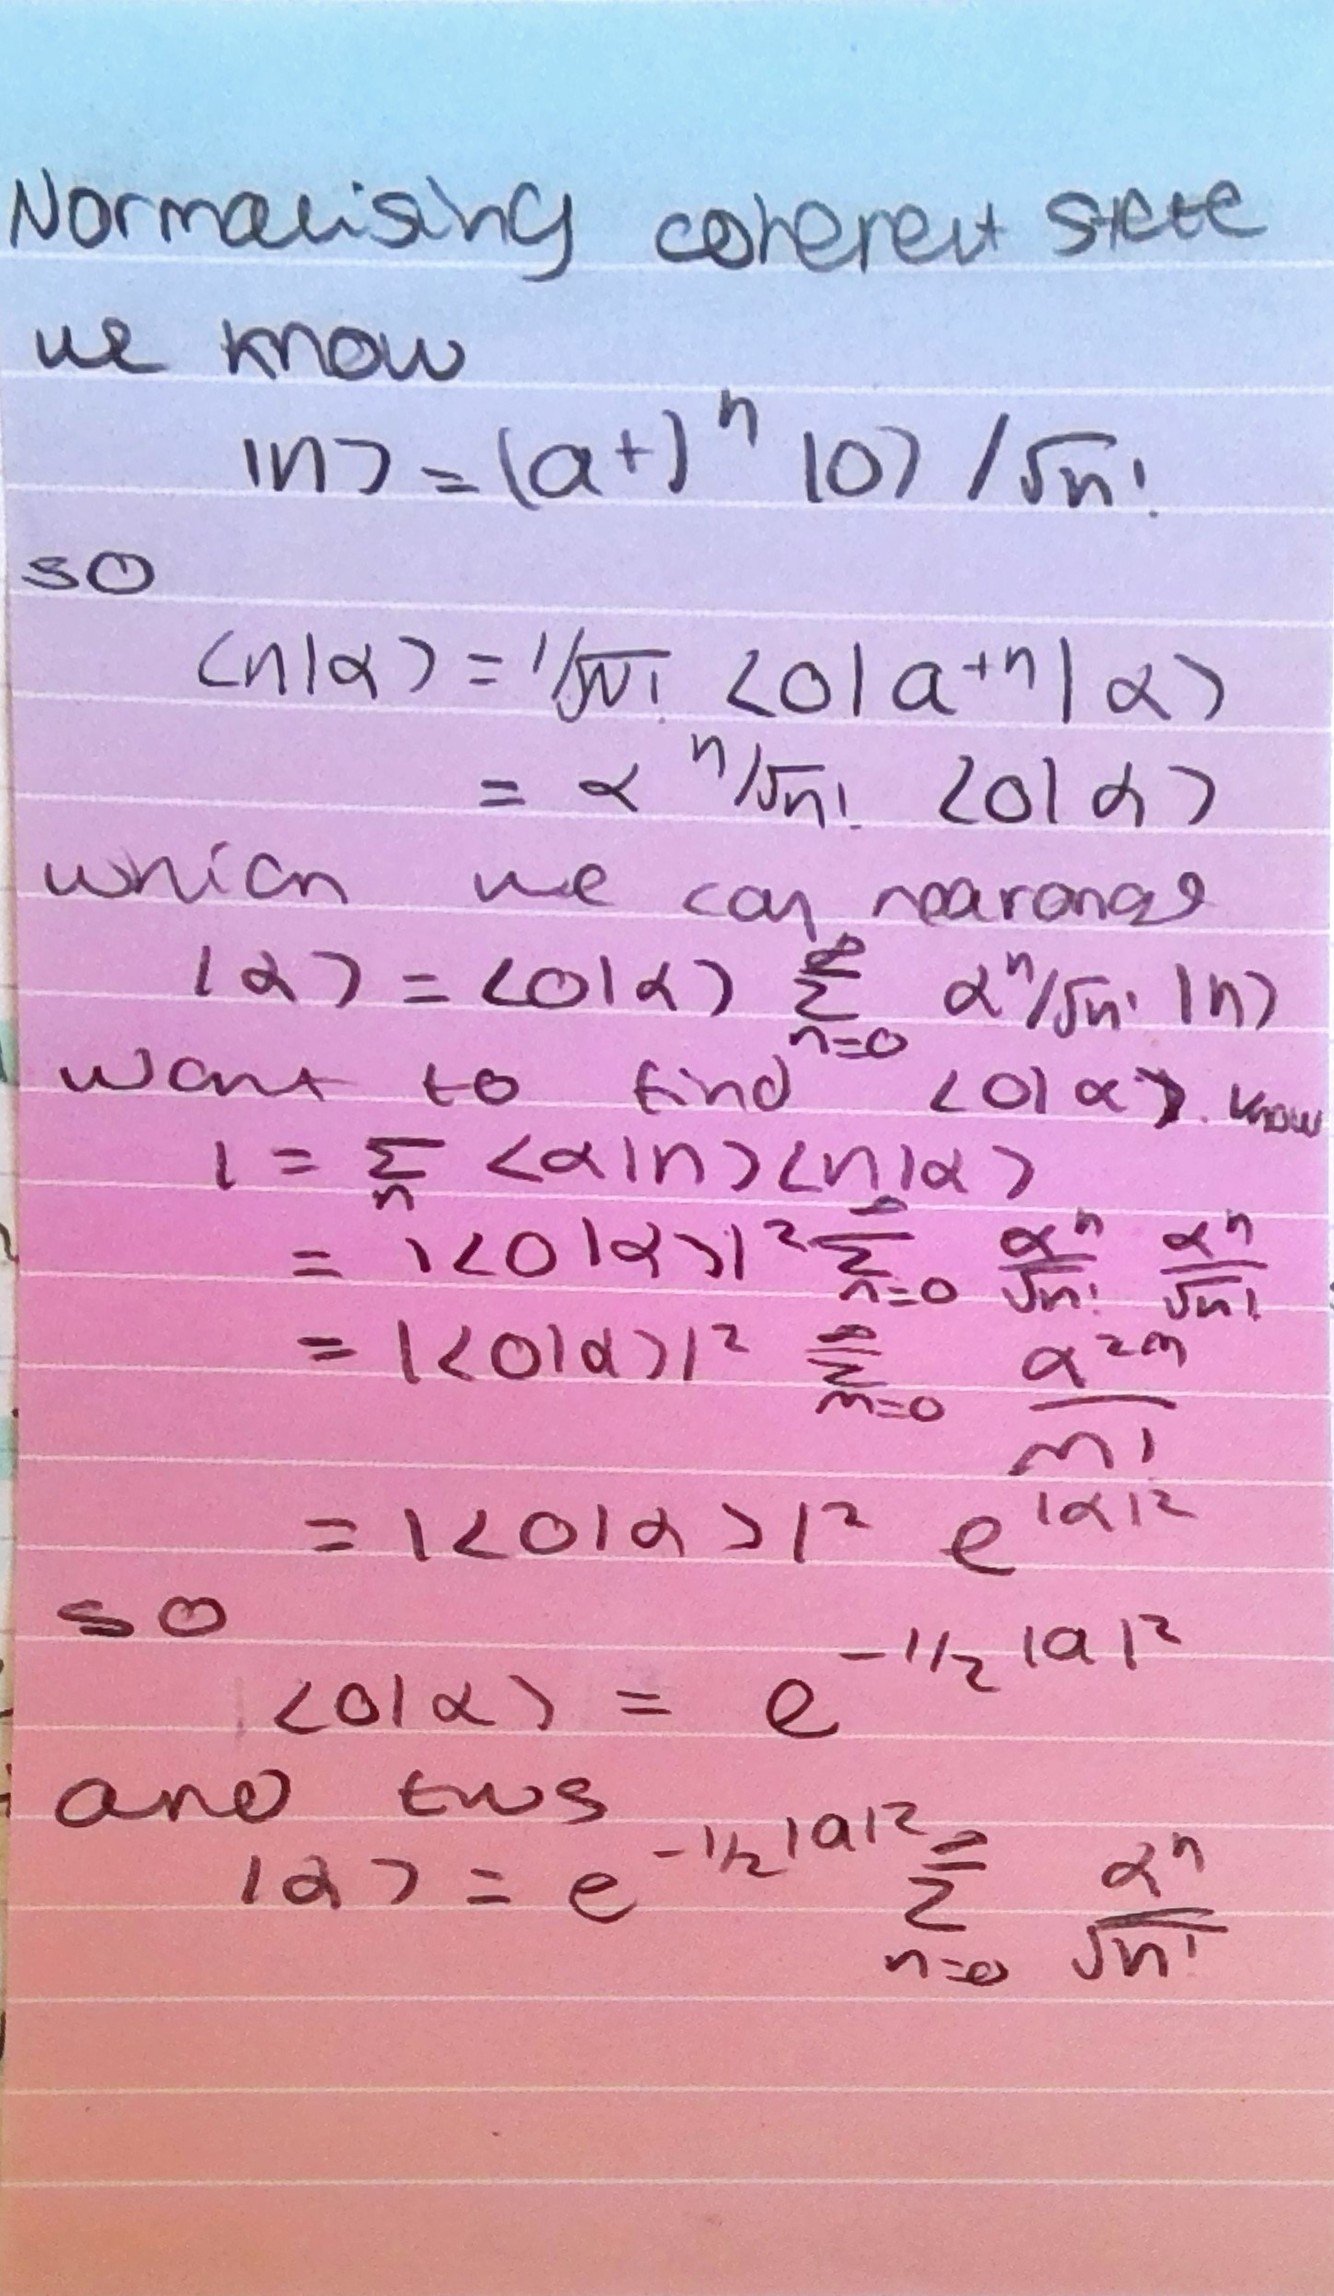 Normalising coherent state
we know
|n> = (a+)^n |0> / √n!
so
<n|α> = 1/√n! <0| a^{+n} |α>
= α^n/√n! <0|α>
which we can rearange
|α> = <0|α> ∑_{n=0}^∞ α^n/√n! |n>
want to find <0|α>. know
1 = ∑_n <α|n><n|α>
= |<0|α>|² ∑_{n=0}^∞ α^n/√n! α^n/√n!
= |<0|α>|² ∑_{n=0}^∞ α^{2n}/n!
= |<0|α>|² e^{|α|²}
so
<0|α> = e^{-1/2 |a|²}
and thus
|α> = e^{-1/2 |a|²} ∑_{n=0}^∞ α^n/√n!